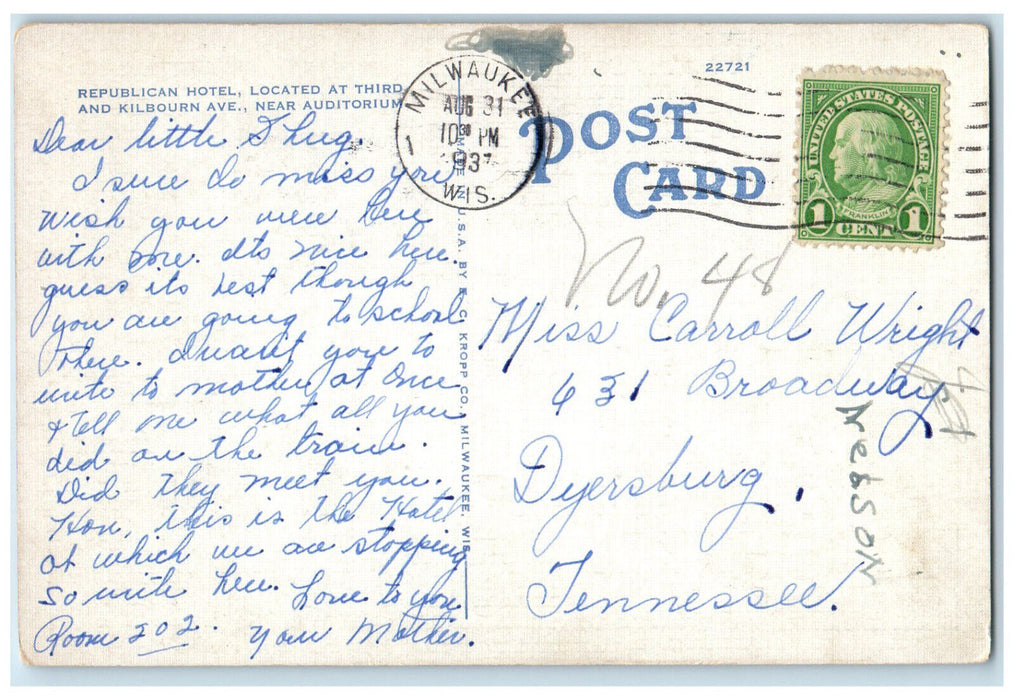 REPUBLICAN HOTEL, LOCATED AT THIRD
AND KILBOURN AVE., NEAR AUDITORIUM
Dear little
I sure do miss you
Wish you were here
with me. Its nice here.
guess its best though
you are going to school
there. I want you to
write to mother at once
& tell me what all you
did on the train.
Did they meet you.
Hon, this is the Hotel
at which we are stopping
so write here. Love to you
Room 202. Your Mother.
MADE IN U.S.A. BY E. C. KROPP CO., MILWAUKEE, WIS.
MILWAUKEE
AUG 31
10 30 PM
193
WIS.
1
22721
POST
CARD
UNITED STATES POSTAGE
FRANKLIN
1 CENT 1
No. 48
Miss Carroll Wright
431 Broadway
Dyersburg,
Tennessee.